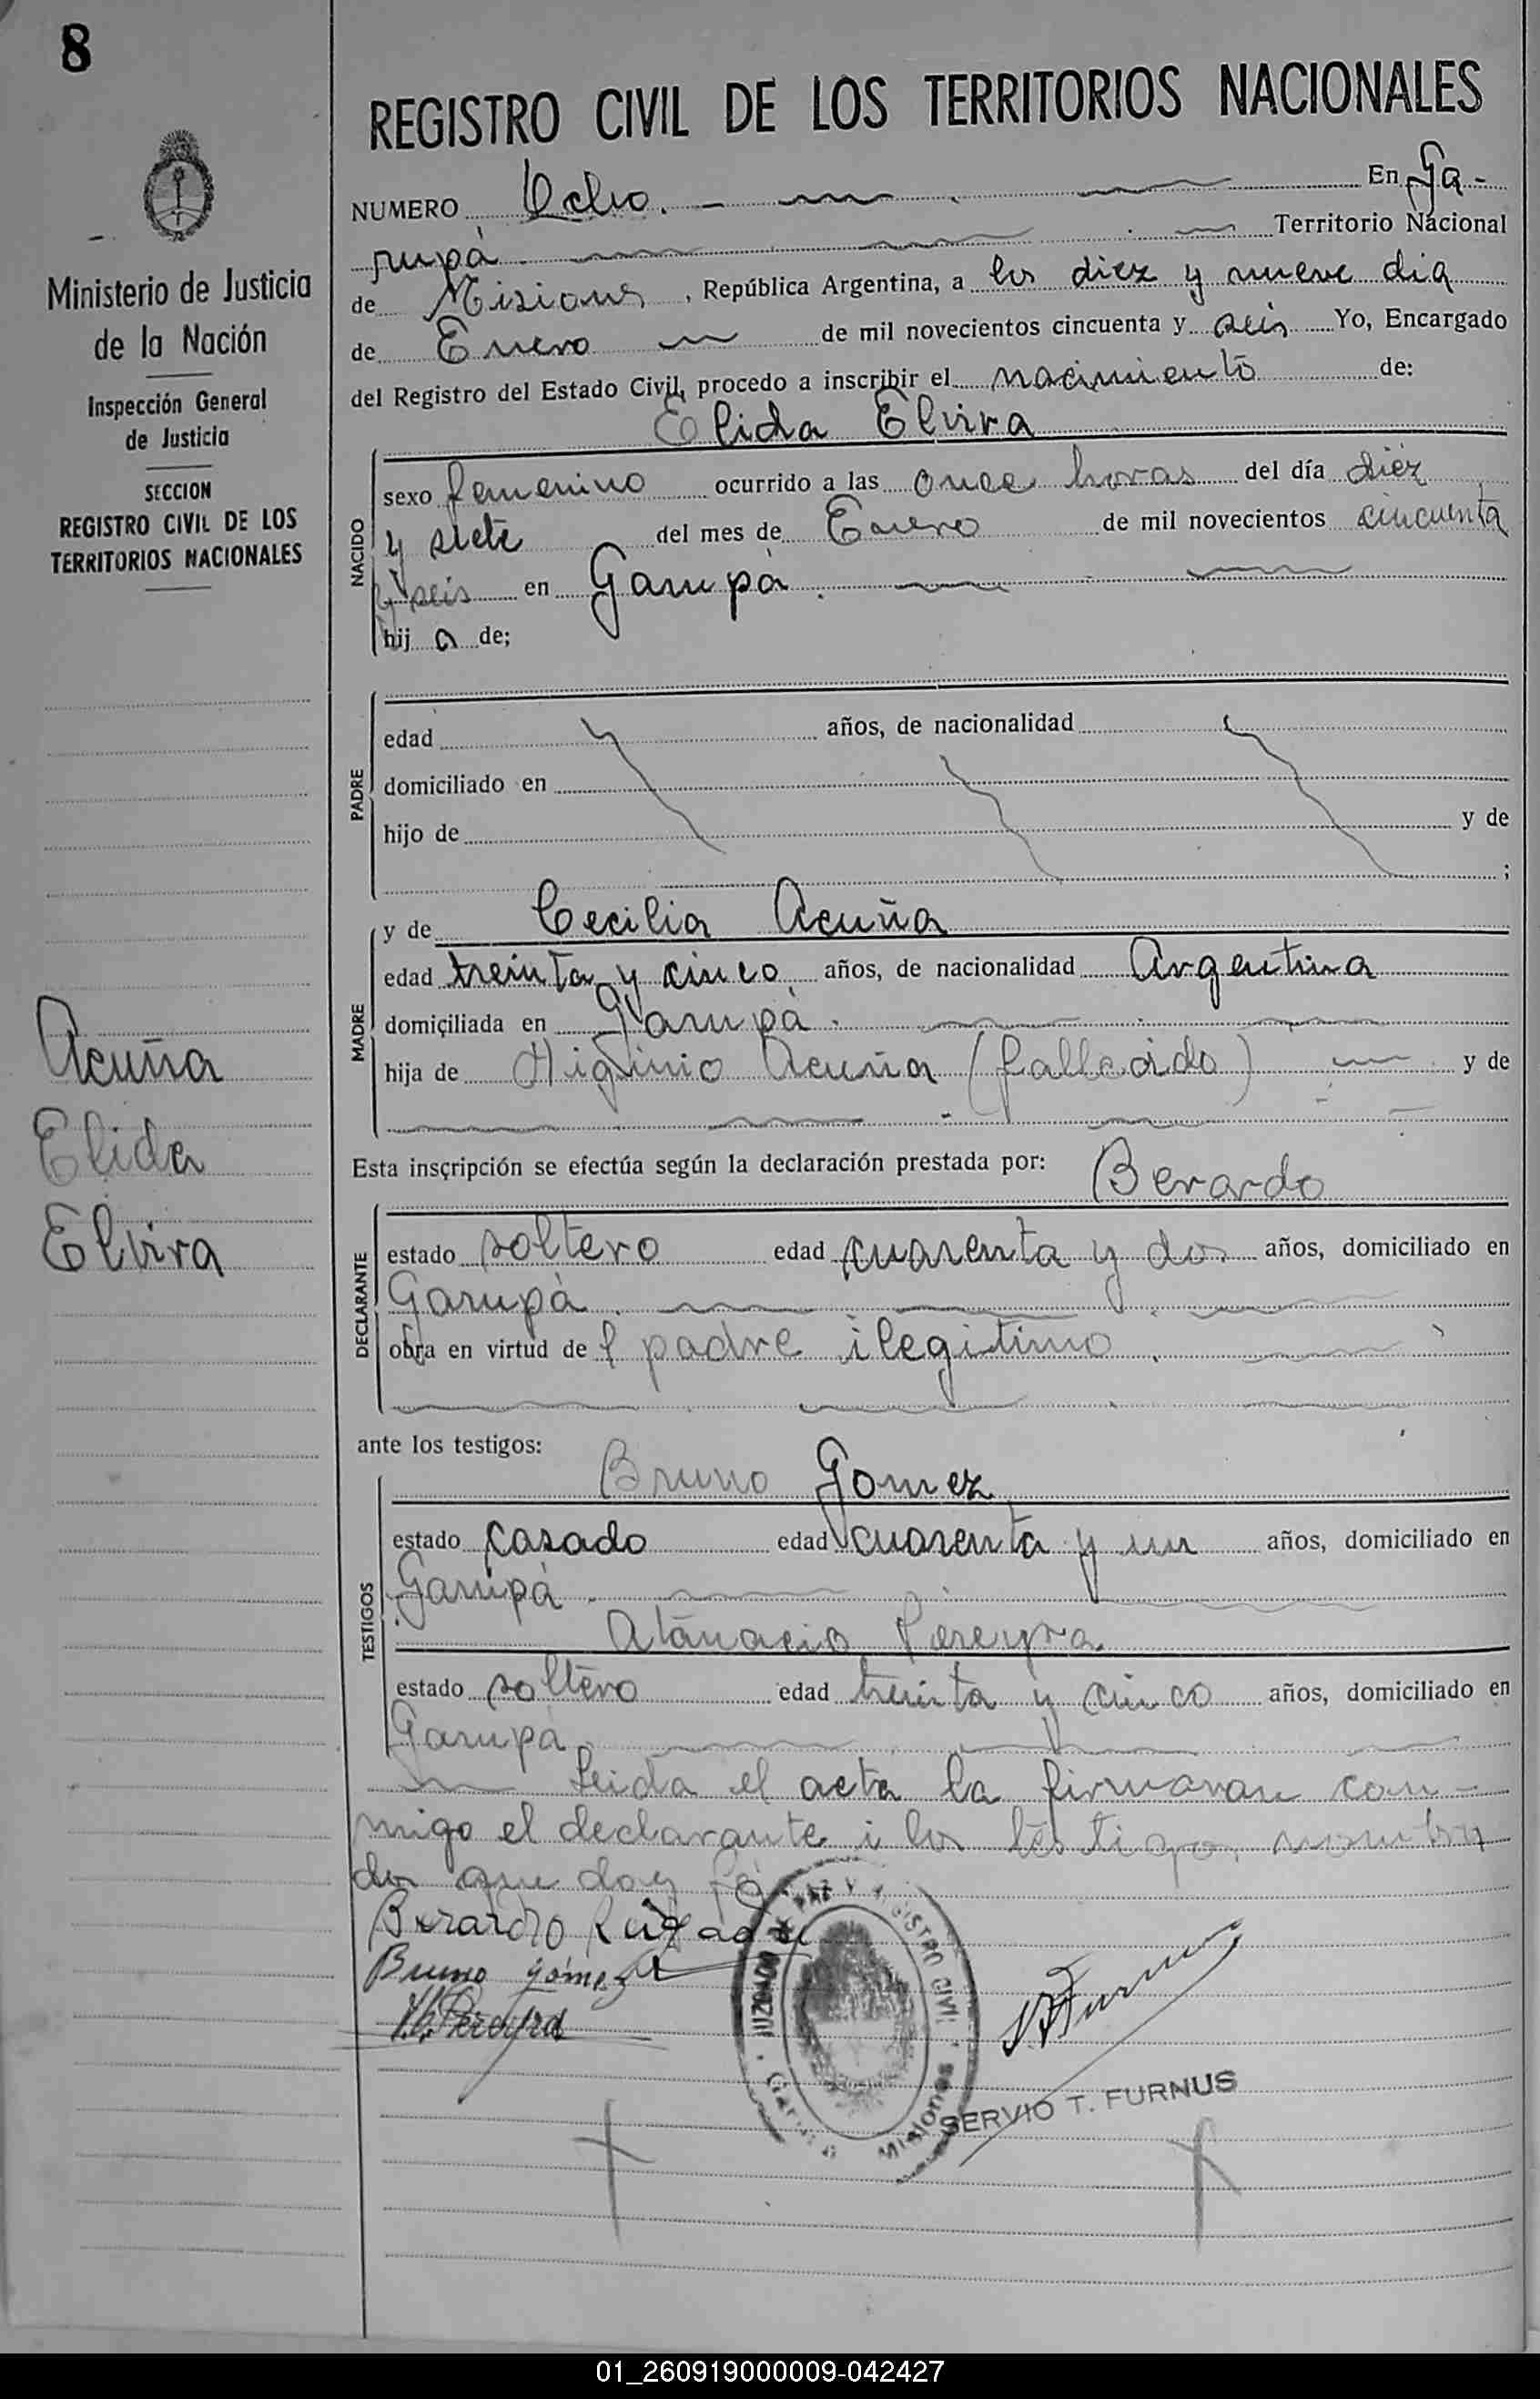 8
REGISTRO CIVIL DE LOS TERRITORIOS NACIONALES
Ministerio de Justicia
de la Nación
Inspección General
de Justicia
SECCION
REGISTRO CIVIL DE LOS
TERRITORIOS NACIONALES
Acuña
Elida
Elvira
NUMERO Ocho. En Ga-
rupá Territorio Nacional
de Misiones, República Argentina, a los diez y nueve dia
de Enero de mil novecientos cincuenta y seis Yo, Encargado
del Registro del Estado Civil, procedo a inscribir el nacimiento de:
Elida Elvira
NACIDO
sexo femenino ocurrido a las once horas del día diez
y siete del mes de Enero de mil novecientos cincuenta
y seis en Garupá.
hij a de;
PADRE
edad años, de nacionalidad
domiciliado en
hijo de y de
;
MADRE
y de Cecilia Acuña
edad treinta y cinco años, de nacionalidad Argentina
domiciliada en Garupá.
hija de Higinio Acuña (fallecido) y de
Esta inscripción se efectúa según la declaración prestada por: Berardo
DECLARANTE
estado soltero edad cuarenta y dos años, domiciliado en
Garupá.
obra en virtud de l padre ilegitimo.
ante los testigos:
TESTIGOS
Bruno Gomez
estado casado edad cuarenta y un años, domiciliado en
Garupá.
Atanacio Pereyra
estado soltero edad treinta y cinco años, domiciliado en
Garupá
Leida el acta la firmaran con-
migo el declarante i los testigos nombra
dos que doy fé
Berardo
Bruno gómez
Pereyra
JUZGADO DE PAZ Y REGISTRO CIVIL
Garupá Misiones
SERVIO T. FURNUS
01_260919000009-042427